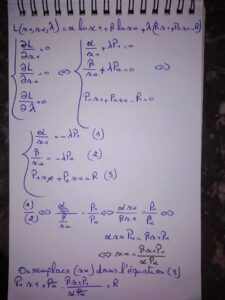 L(x1,x2,λ) = α ln x1 + β ln x2 + λ(P1x1 + P2x2 - R)
∂L/∂x1 = 0 ⇔ α/x1 + λP1 = 0 ⇔
∂L/∂x2 = 0 β/x2 + λP2 = 0
∂L/∂λ = 0 P1x1 + P2x2 - R = 0
α/x1 = -λP1 (1)
β/x2 = -λP2 (2)
P1x1 + P2x2 = R (3)
(1)/(2) ⇔ (α/x1)/(β/x2) = P1/P2 ⇔ αx2/βx1 = P1/P2
αx2P2 = βx1P1
⇔ x2 = βx1P1/αP2
On remplace (x2) dans l'équation (3)
P1x1 + P2 βx1P1/αP2 = R